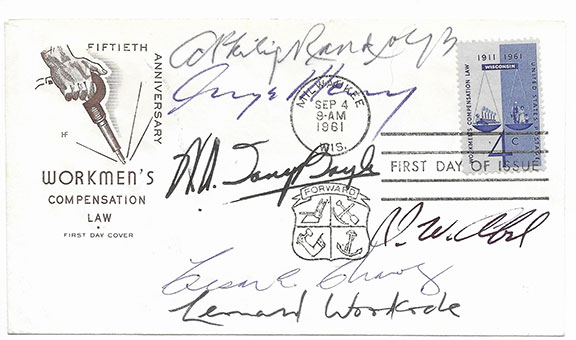 FIFTIETH
ANNIVERSARY
HF
WORKMEN'S
COMPENSATION
LAW
FIRST DAY COVER
A Philip Randolph
George Meany
MILWAUKEE
SEP 4
9-AM
1961
WIS.
1911 1961
WISCONSIN
WORKMEN'S COMPENSATION LAW
UNITED STATES
4c
FIRST DAY OF ISSUE
W.A. Tony Boyle
FORWARD
I. W. Abel
Cesar E Chavez
Leonard Woodcock